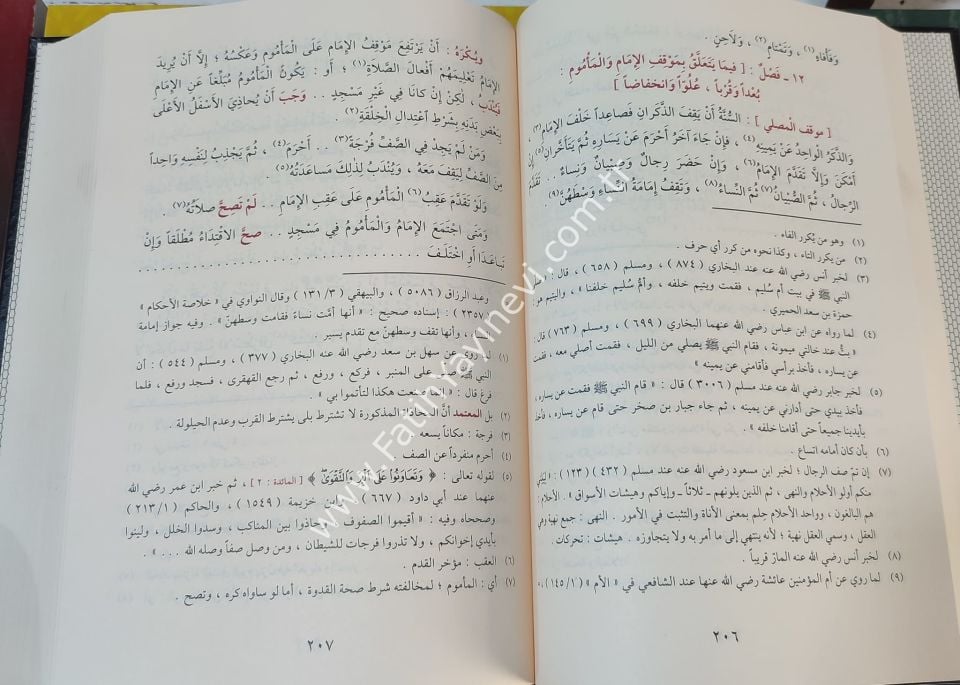 وَفَأْفَاءٍ(١) ، وَتَمْتَامٍ(٢) ، وَلَاحِنٍ .
١٢ - فَصْلٌ : [ فِيمَا يَتَعَلَّقُ بِمَوْقِفِ الإِمَامِ وَالْمَأْمُومِ :
بُعْداً وَقُرْباً ، عُلُوّاً وَانْخِفَاضاً ]
[ موقف المصلي ] : السُّنَّةُ أَنْ يَقِفَ الذَّكَرَانِ فَصَاعِداً خَلْفَ الإِمَامِ(٣) ،
وَالذَّكَرُ الْوَاحِدُ عَنْ يَمِينِهِ(٤) ، فَإِنْ جَاءَ آخَرُ أَحْرَمَ عَنْ يَسَارِهِ ثُمَّ يَتَأَخَّرَانِ(٥) إِنْ
أَمْكَنَ وَإِلَّا تَقَدَّمَ الإِمَامُ(٦) ، وَإِنْ حَضَرَ رِجَالٌ وَصِبْيَانٌ وَنِسَاءٌ .. تَقَدَّمَ
الرِّجَالُ ، ثُمَّ الصِّبْيَانُ(٧) ثُمَّ النِّسَاءُ(٨) ، وَتَقِفُ إِمَامَةُ النِّسَاءِ وَسْطَهُنَّ(٩) .
(١) وهو من يُكرر الفاء .
(٢) من يكرر التاء ، وكذا نحوه من كرر أي حرف .
(٣) لخبر أنس رضي الله عنه عند البخاري ( ٨٧٤ ) ، ومسلم ( ٦٥٨ ) ، قال :
النبي ﷺ في بيت أم سُليم ، فقمت ويتيم خلفه ، وأمُّ سُليم خلفنا » ، واليتيم هو :
حمزة بن سعد الحميري .
(٤) لما رواه عن ابن عباس رضي الله عنهما البخاري ( ٦٩٩ ) ، ومسلم ( ٧٦٣ ) قال :
« بتُّ عند خالتي ميمونة ، فقام النبي ﷺ يصلي من الليل ، فقمت أصلي معه ، فقمت
عن يساره ، فأخذ برأسي فأقامني عن يمينه » .
(٥) لخبر جابر رضي الله عنه عند مسلم ( ٣٠٠٦ ) قال : « قام النبي ﷺ فقمت عن يساره ،
فأخذ بيدي حتى أدارني عن يمينه ، ثم جاء جبار بن صخر حتى قام عن يساره ، فأخذ
بأيدينا جميعاً حتى أقامنا خلفه » .
(٦) بأن كان أمامه اتساع .
(٧) إن تمّ صف الرجال ؛ لخبر ابن مسعود رضي الله عنه عند مسلم ( ٤٣٢ ) ( ١٢٣ ) : « ليَلِني
منكم أولو الأحلام والنهى ، ثم الذين يلونهم - ثلاثاً - وإياكم وهيشات الأسواق » . الأحلام :
هم البالغون ، وواحد الأحلام حِلم بمعنى الأناة والتثبت في الأمور . النهى : جمع نهية وهي
العقل ، وسمي العقل نهية ؛ لأنه ينتهي إلى ما أمر به ولا يتجاوزه . هيشات : تحركات .
(٨) لخبر أنس رضي الله عنه المارّ قريباً .
(٩) لما روي عن أم المؤمنين عائشة رضي الله عنها عند الشافعي في « الأم » ( ١٤٥/١ ) ،
٢٠٦
وَيُكْرَهُ : أَنْ يَرْتَفِعَ مَوْقِفُ الإِمَامِ عَلَى الْمَأْمُومِ وَعَكْسُهُ ؛ إِلَّا أَنْ يُرِيدَ
الإِمَامُ تَعْلِيمَهُمْ أَفْعَالَ الصَّلَاةِ(١) ؛ أَوْ : يَكُونُ الْمَأْمُومُ مُبَلِّغاً عَنِ الإِمَامِ
فَيُنْدَبُ ، لَكِنْ إِنْ كَانَا فِي غَيْرِ مَسْجِدٍ .. وَجَبَ أَنْ يُحَاذِيَ الأَسْفَلُ الأَعْلَى
بِبَعْضِ بَدَنِهِ بِشَرْطِ اعْتِدَالِ الْخِلْقَةِ(٢) .
وَمَنْ لَمْ يَجِدْ فِي الصَّفِّ فُرْجَةً(٣) .. أَحْرَمَ(٤) ، ثُمَّ يَجْذِبُ لِنَفْسِهِ وَاحِداً
مِنَ الصَّفِّ لِيَقِفَ مَعَهُ ، وَيُنْدَبُ لِذَلِكَ مُسَاعَدَتُهُ(٥) .
وَلَوْ تَقَدَّمَ عَقِبُ(٦) الْمَأْمُومِ عَلَى عَقِبِ الإِمَامِ .. لَمْ تَصِحَّ صَلَاتُهُ(٧) .
وَمَتَى اجْتَمَعَ الإِمَامُ وَالْمَأْمُومُ فِي مَسْجِدٍ .. صحَّ الاقْتِدَاءُ مُطْلَقاً وَإِنْ
تَبَاعَدَا أَوِ اخْتَلَفَ . . . . . . . . . . . . . . . . . . . . . . .
وعبد الرزاق ( ٥٠٨٦ ) ، والبيهقي ( ١٣١/٣ ) وقال النواوي في « خلاصة الأحكام »
( ٢٣٥٧ ) : إسناده صحيح : « أنها أمّت نساءً فقامت وسطهنّ » . وفيه جواز إمامة
النساء ، وأنها تقف وسطهنّ مع تقدم يسير .
(١) لما روي عن سهل بن سعد رضي الله عنه البخاري ( ٣٧٧ ) ، ومسلم ( ٥٤٤ ) : أن
النبي ﷺ صلى على المنبر ، فركع ، ورفع ، ثم رجع القهقرى ، فسجد ورفع ، فلما
فرغ قال : « إنما صنعت هكذا لتأتموا بي » .
(٢) بل المعتمد أنَّ المحاذاة المذكورة لا تشترط بلى يشترط القرب وعدم الحيلولة .
(٣) فرجة : مكاناً يسعه .
(٤) أحرم منفرداً عن الصف .
(٥) لقوله تعالى : ﴿ وَتَعَاوَنُوا عَلَى الْبِرِّ وَالتَّقْوَى ﴾ [ المائدة : ٢ ] ، ثم خبر ابن عمر رضي الله
عنهما عند أبي داود ( ٦٦٧ ) ، وابن خزيمة ( ١٥٤٩ ) ، والحاكم ( ٢١٣/١ )
وصححاه وفيه : « أقيموا الصفوف ، وحاذوا بين المناكب ، وسدوا الخلل ، ولينوا
بأيدي إخوانكم ، ولا تذروا فرجات للشيطان ، ومن وصل صفاً وصله الله ... » .
(٦) العقب : مؤخر القدم .
(٧) أي : المأموم ؛ لمخالفته شرط صحة القدوة ، أما لو ساواه كره ، وتصح .
٢٠٧
www.FatihYayinevi.com.tr